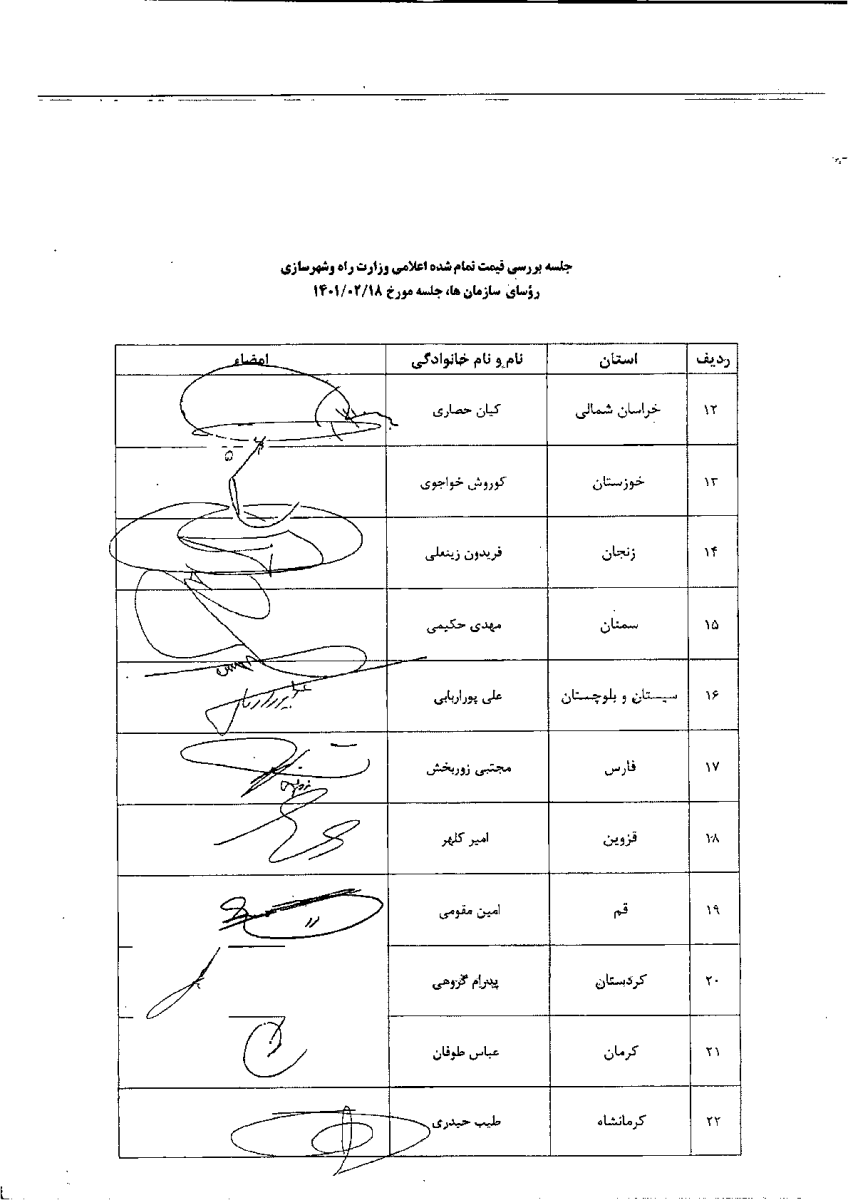 جلسه بررسی قیمت تمام شده اعلامی وزارت راه وشهرسازی
رؤسای سازمان ها، جلسه مورخ ۱۴۰۱/۰۲/۱۸
ردیف استان نام و نام خانوادگی امضاء
۱۲ خراسان شمالی کیان حصاری
۱۳ خوزستان کوروش خواجوی
۱۴ زنجان فریدون زینعلی
۱۵ سمنان مهدی حکیمی
۱۶ سیستان و بلوچستان علی پوراربابی
۱۷ فارس مجتبی زوربخش
۱۸ قزوین امیر کلهر
۱۹ قم امین مقومی
۲۰ کردستان پدرام گروهی
۲۱ کرمان عباس طوفان
۲۲ کرمانشاه طیب حیدری